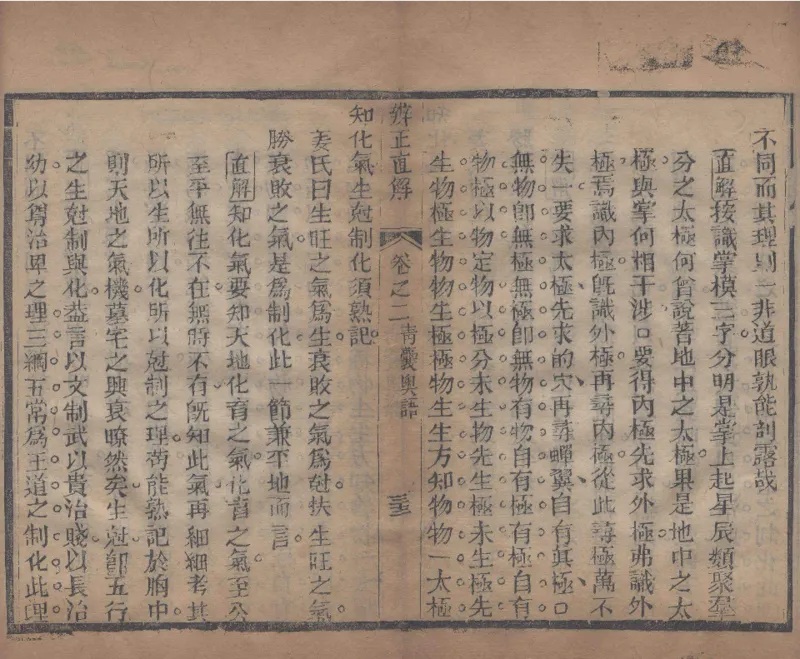 不同而其理則一非道眼孰能剖露哉
直解按識掌模三字分明是掌上起星辰類聚羣
分之太極何曾說著地中之太極果是地中之太
極與掌何相干涉口要得內極先求外極弗識外
極焉識內極既識外極再尋內極從此尋極萬不
失一要求太極先求的穴再尋蟬翼自有真極口
無物卽無極無極卽無物有物自有極有極自有
物極以物定物以極分未生物先生極未生極先
生物極生物物生極極物生生方知物物一太極
辨正直解
卷之二
青囊奧語
三三
知化氣生尅制化須熟記
姜氏曰生旺之氣爲生衰敗之氣爲尅扶生旺之氣
勝衰敗之氣是爲制化此一節兼平地而言
直解知化氣要知天地化育之氣化育之氣至公
至平無往不在無時不有旣知此氣再細細考其
所以生所以化所以尅制之理苟能熟記於胸中
則天地之氣機墓宅之興衰瞭然矣生尅卽五行
之生尅制與化益言以文制武以貴治賤以長治
幼以尊治卑之理三綱五常爲王道之制化此理